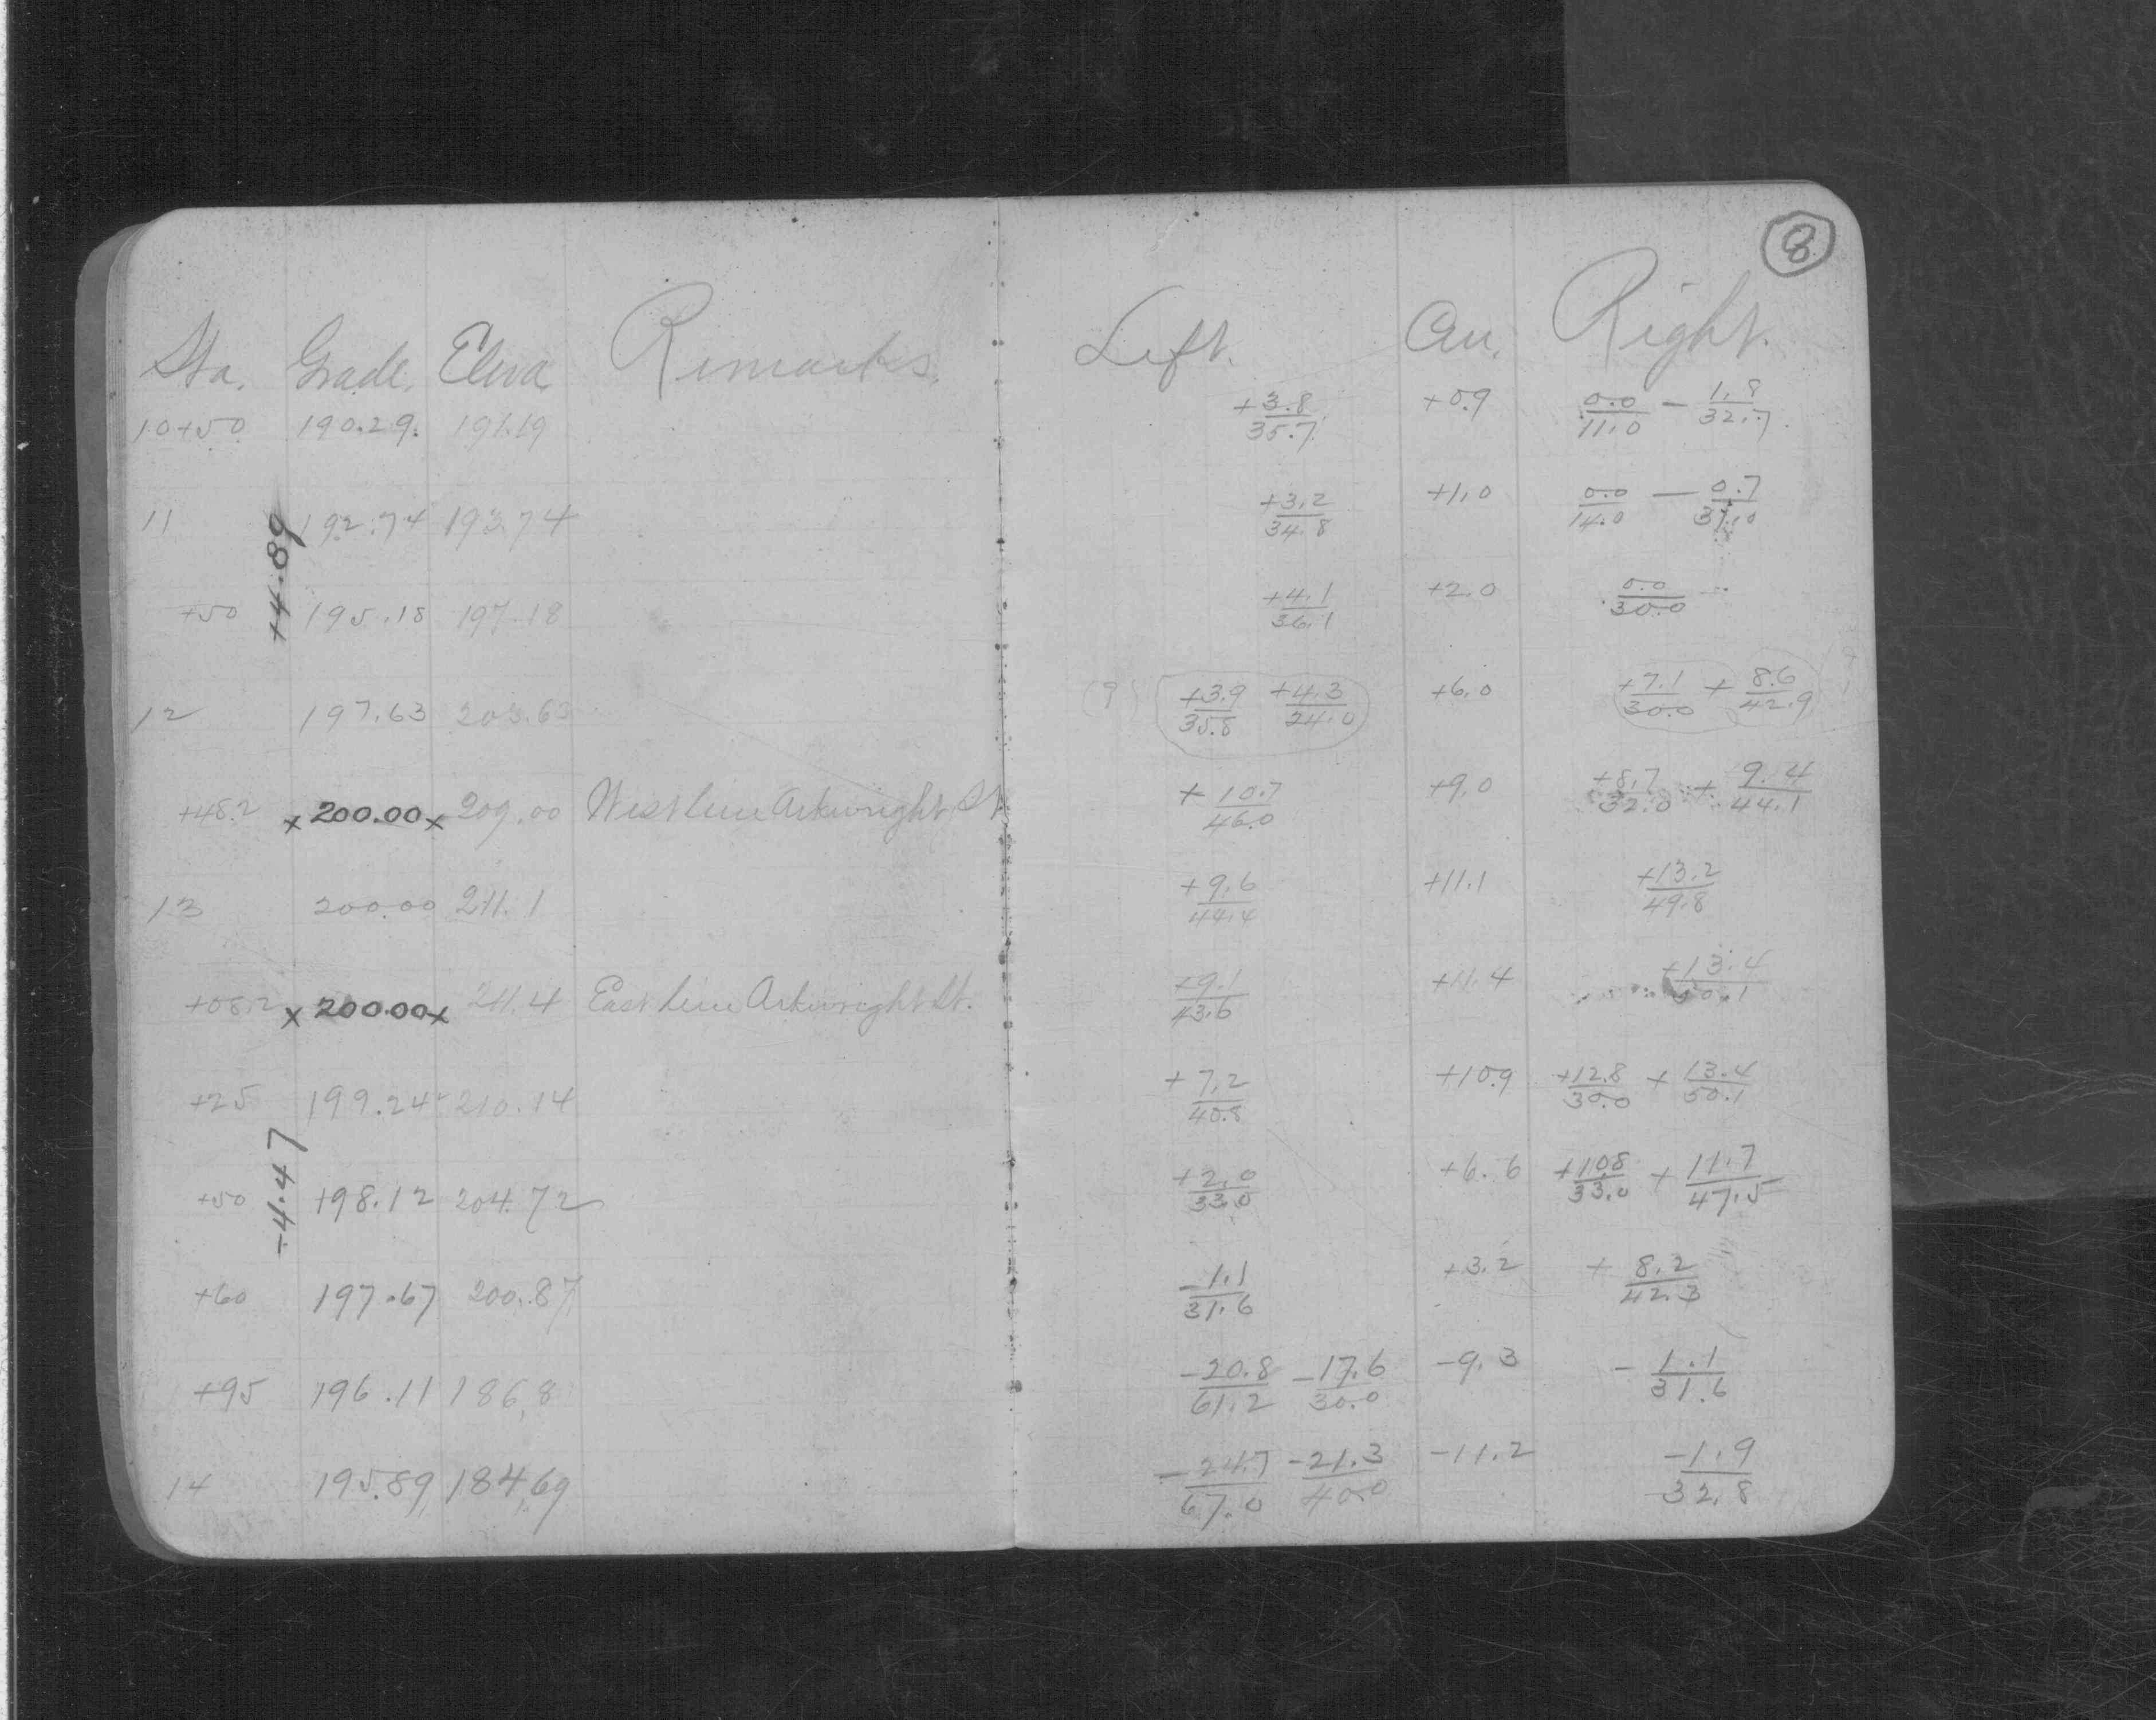 8
Sta. Grade. Eleva Remarks. Left. Cen. Right.
10+50 190.29. 191.19 +3.8/35.7 +0.9 0.0/11.0 - 1.8/32.7
11 192.74 193.74 +3.2/34.8 +1.0 0.0/14.0 - 0.7/31.0
+4.89
+50 195.18 197.18 +4.1/36.1 +2.0 0.0/30.0
12 197.63 203.63 (?) +3.9/35.8 +4.3/24.0 +6.0 +7.1/30.0 + 8.6/42.9
+48.2 x 200.00 x 209.00 West line Arkwright St. +10.7/46.0 +9.0 +8.7/32.0 + 9.4/44.1
13 200.00 211.1 +9.6/44.4 +11.1 +13.2/49.8
+08.2 x 200.00 x 211.4 East Line Arkwright St. +9.1/43.6 +11.4 +13.4/50.1
+25 199.24 210.14 +7.2/40.8 +10.9 +12.8/30.0 + 13.4/50.1
-4.47
+50 198.12 204.72 +2.0/33.0 +6.6 +10.8/33.0 + 11.7/47.5
+60 197.67 200.87 -1.1/31.6 +3.2 + 8.2/42.3
+95 196.11 186.8 -20.8/61.2 -17.6/30.0 -9.3 - 1.1/31.6
14 195.89 184.69 -24.7/67.0 -21.3/40.0 -11.2 -1.9/32.8